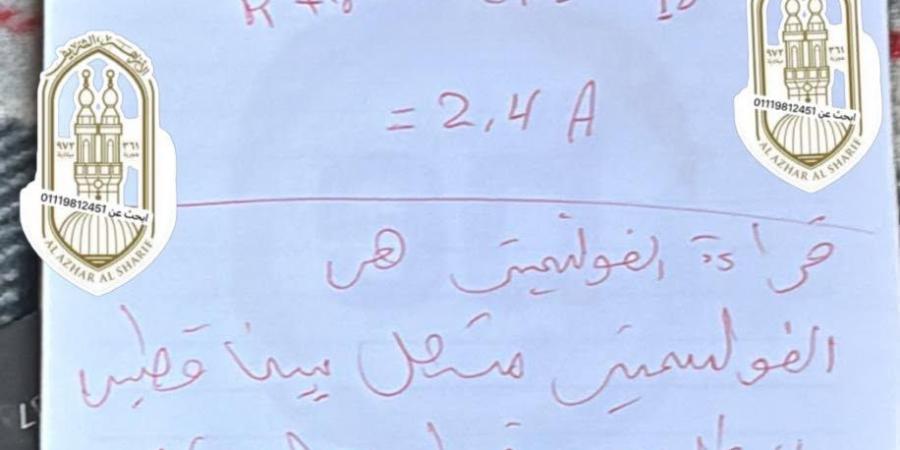 = 2,4 A
قراءة الفولتميتر هى
الفولتميتر متصل بين قطبى
الأزهر الشريف
٣٦١ هجرية
٩٧٢ ميلادية
ابحث عن 01119812451
AL AZHAR AL SHARIF
٣٦١ هجرية
٩٧٢ ميلادية
ابحث عن 01119812451
AL AZHAR AL SHARIF